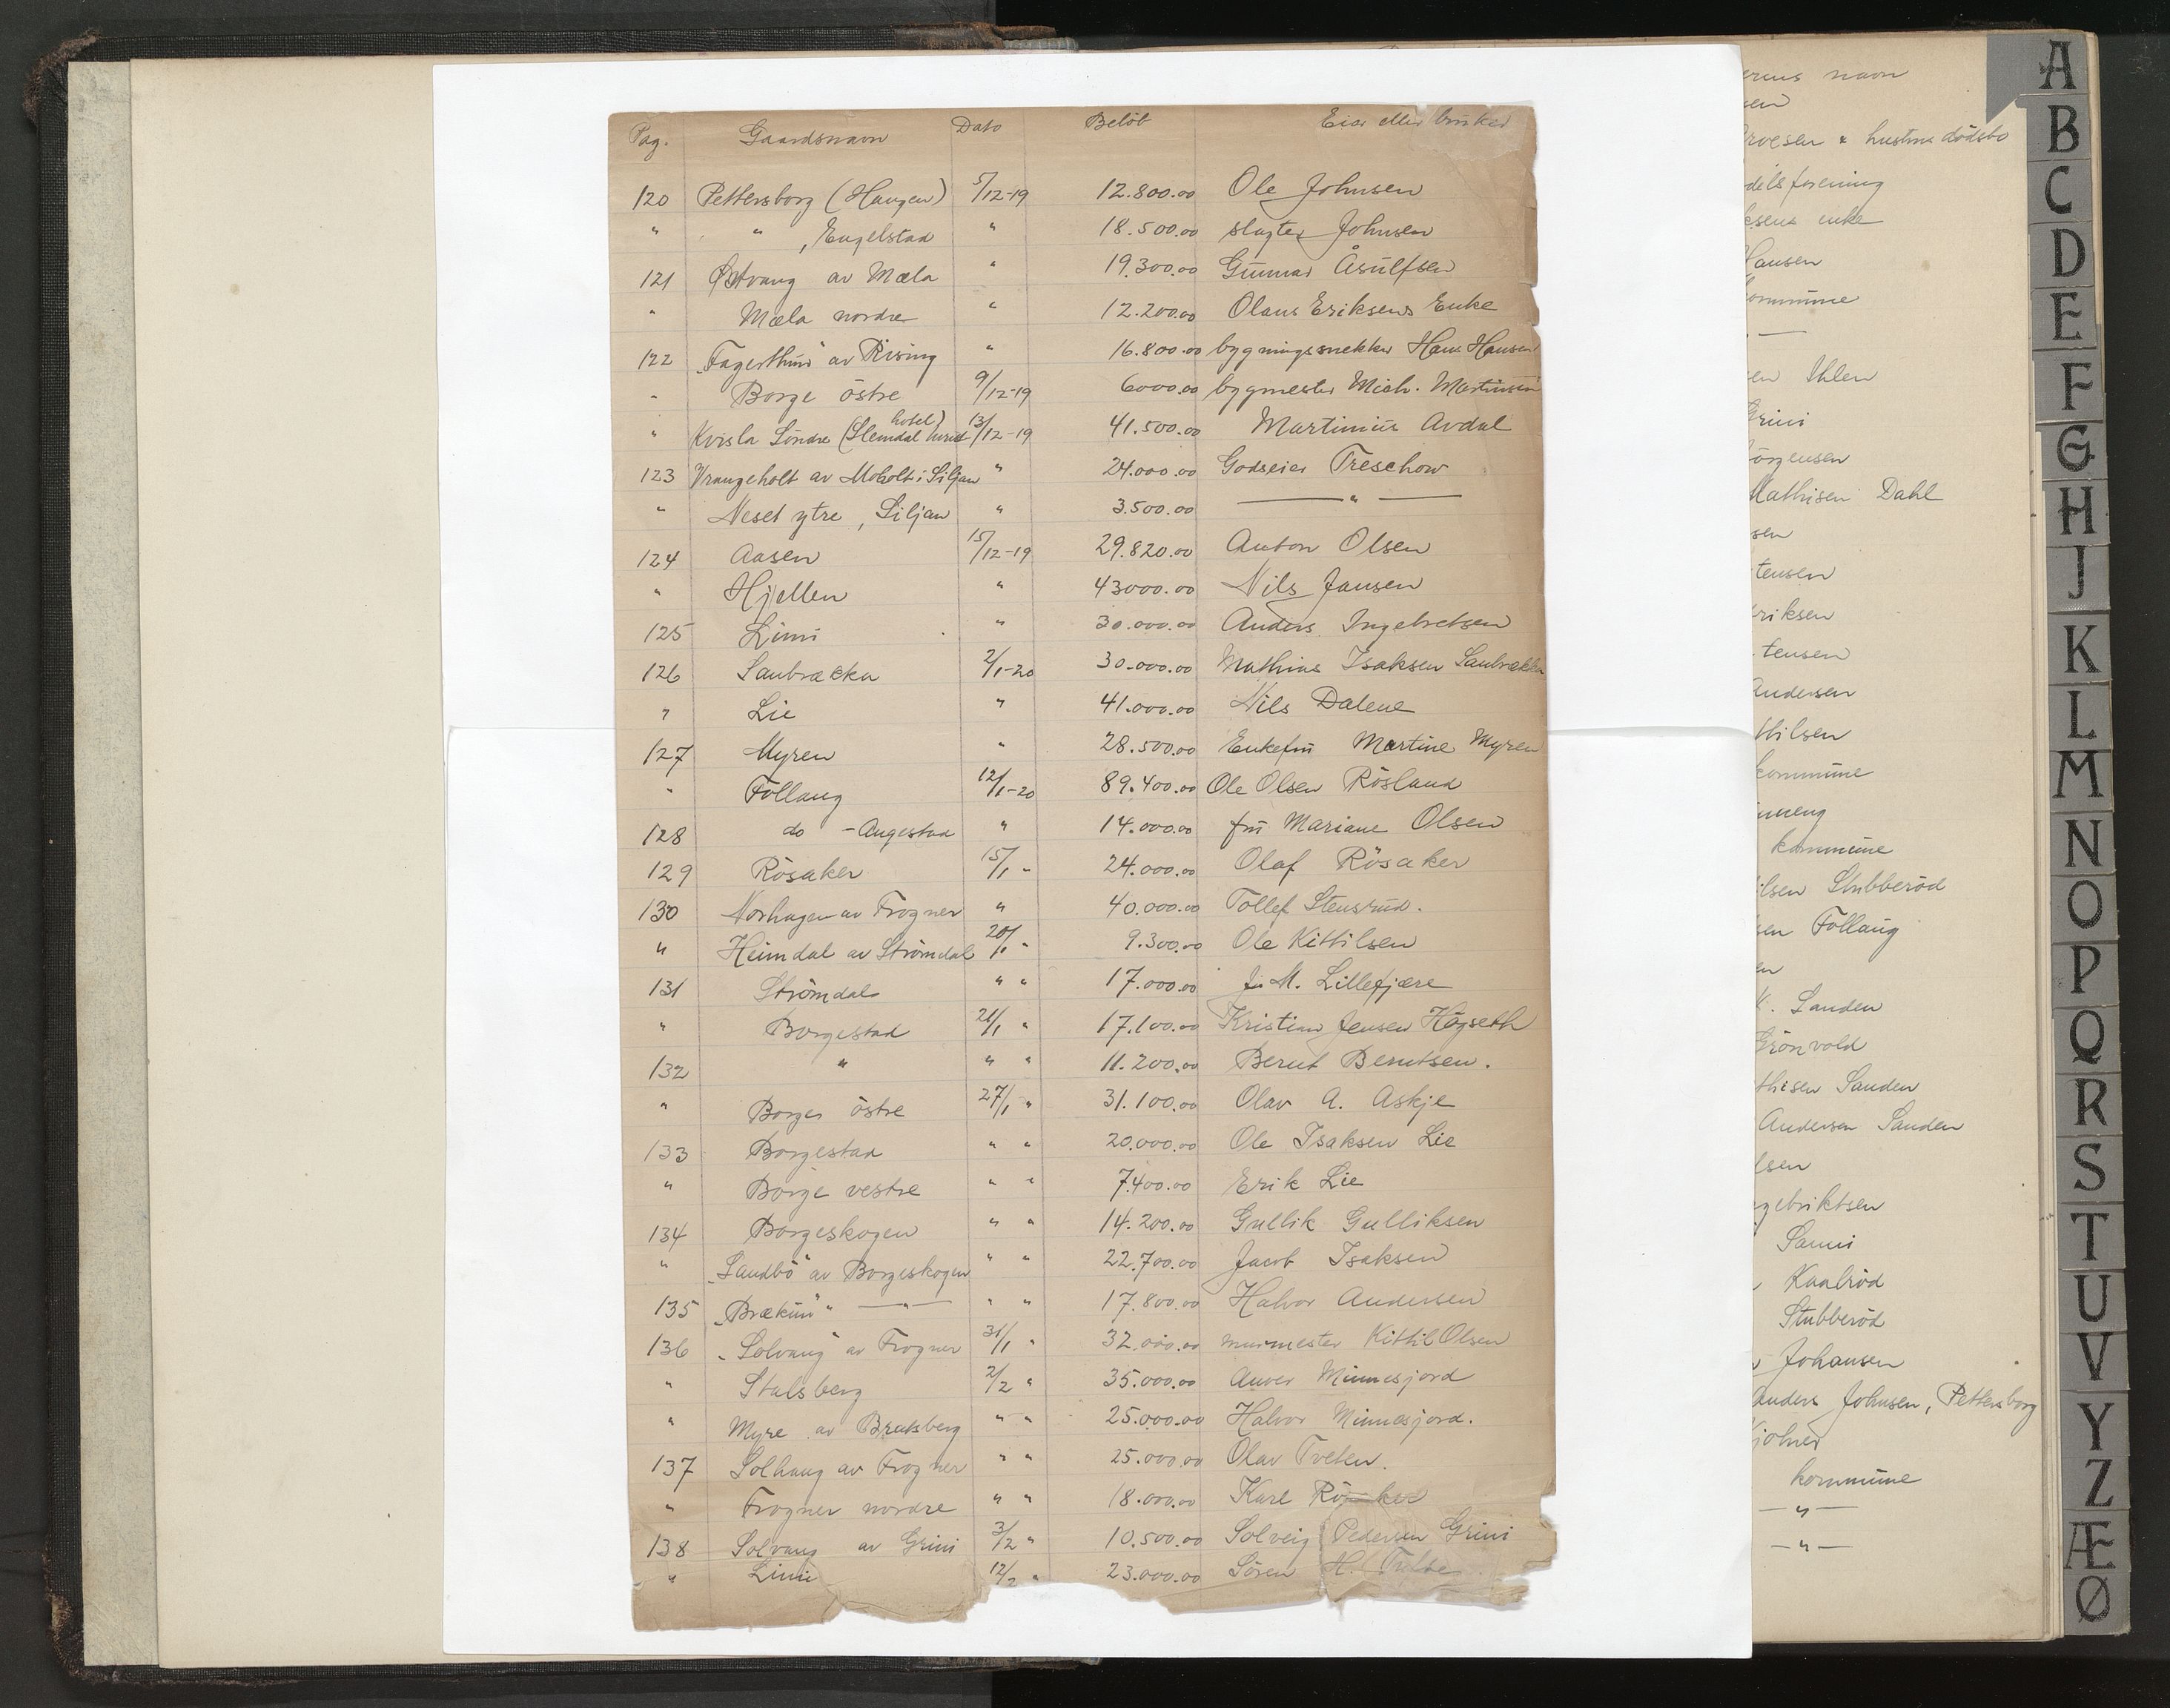 Pag. Gaardsnavn Dato Beløb Eier eller bruker
120 Pettersborg (Haugen) 5/12-19 12.800.00 Ole Johnsen
" " , Engelstad " 18.500.00 slagter Johnsen
121 Østvang av Mæla " 19.300.00 Gunnar Åsulfsen
" Mæla nordre " 12.200.00 Olaus Eriksens Enke
122 „Fagerthun" av Rising " 16.800.00 bygningssnekker Hans Hansen
" Borge östre 9/12-19 6000.00 bygmester Mich. Martinsen
" Kvisla Söndre (Slemdal turist hotel) 13/12-19 41.500.00 Martinius Avdal
123 Vrangeholt av Moholt i Siljan " 24.000.00 Godseier Treschow
" Neset ytre, Siljan " 3.500.00 — " —
124 Aasen 15/12-19 29.820.00 Anton Olsen
" Hjellen " 43000.00 Nils Jansen
125 Limi " 30.000.00 Anders Ingebretsen
126 Saubrækka 2/1-20 30.000.00 Mathias Isaksen Saubrækka
" Lie " 41.000.00 Nils Dalene
127 Myren " 28.500.00 Enkefru Martine Myren
" Follaug 12/1-20 89.400.00 Ole Olsen Rösland
128 do - Augestad " 14.000.00 fru Mariane Olsen
129 Rösaker 15/1 " 24.000.00 Olaf Rösaker
130 Norhagen av Frogner " 40.000.00 Tollef Stensrud.
" Heimdal av Strömdal 20/1 " 9.300.00 Ole Kittilsen
131 Strömdal " " 17.000.00 J. M. Lillefjære
" Borgestad 21/1 " 17.100.00 Kristian Jensen Högseth
132 " " " 11.200.00 Bernt Berntsen.
" Borge östre 27/1 " 31.100.00 Olav A. Askje
133 Borgestad " " 20.000.00 Ole Isaksen Lie
" Borge vestre " " 7.400.00 Erik Lie
134 Borgeskogen " " 14.200.00 Gullik Gulliksen
" „Sandbö" av Borgeskogen " " 22.700.00 Jacob Isaksen
135 „Brækun" " — " — " " 17.800.00 Halvor Andersen
136 „Solvang" av Frogner 31/1 " 32.000.00 murmester Kittil Olsen
" Stulsberg 2/2 " 35.000.00 Anver Minnesjord
" Myre av Bratsberg " " 25.000.00 Halvor Minnesjord.
137 Solhaug av Frogner " " 25.000.00 Olav Tveten.
" Frogner nordre " " 18.000.00 Karl Rösaker
138 Solvang av Grini 3/2 " 10.500.00 Solveig Pedersen Grini
" Limi 12/2 " 23.000.00 Sören H. Tufte
navn
hustru dödsbo
enke
Hansen
kommune
— " —
Ihlen
Grini
Mathisen Dahl
Andersen
kommune
kommune
Stubberöd
Follaug
Sanden
Grönvold
Sanden
Andersen Sanden
Sanni
Kaalröd
Stubberöd
Johansen
Anders Johnsen, Pettersborg
kommune
— " —
— " —
A
B
C
D
E
F
G
H
J
K
L
M
N
O
P
Q
R
S
T
U
V
Y
Z
Æ
Ø